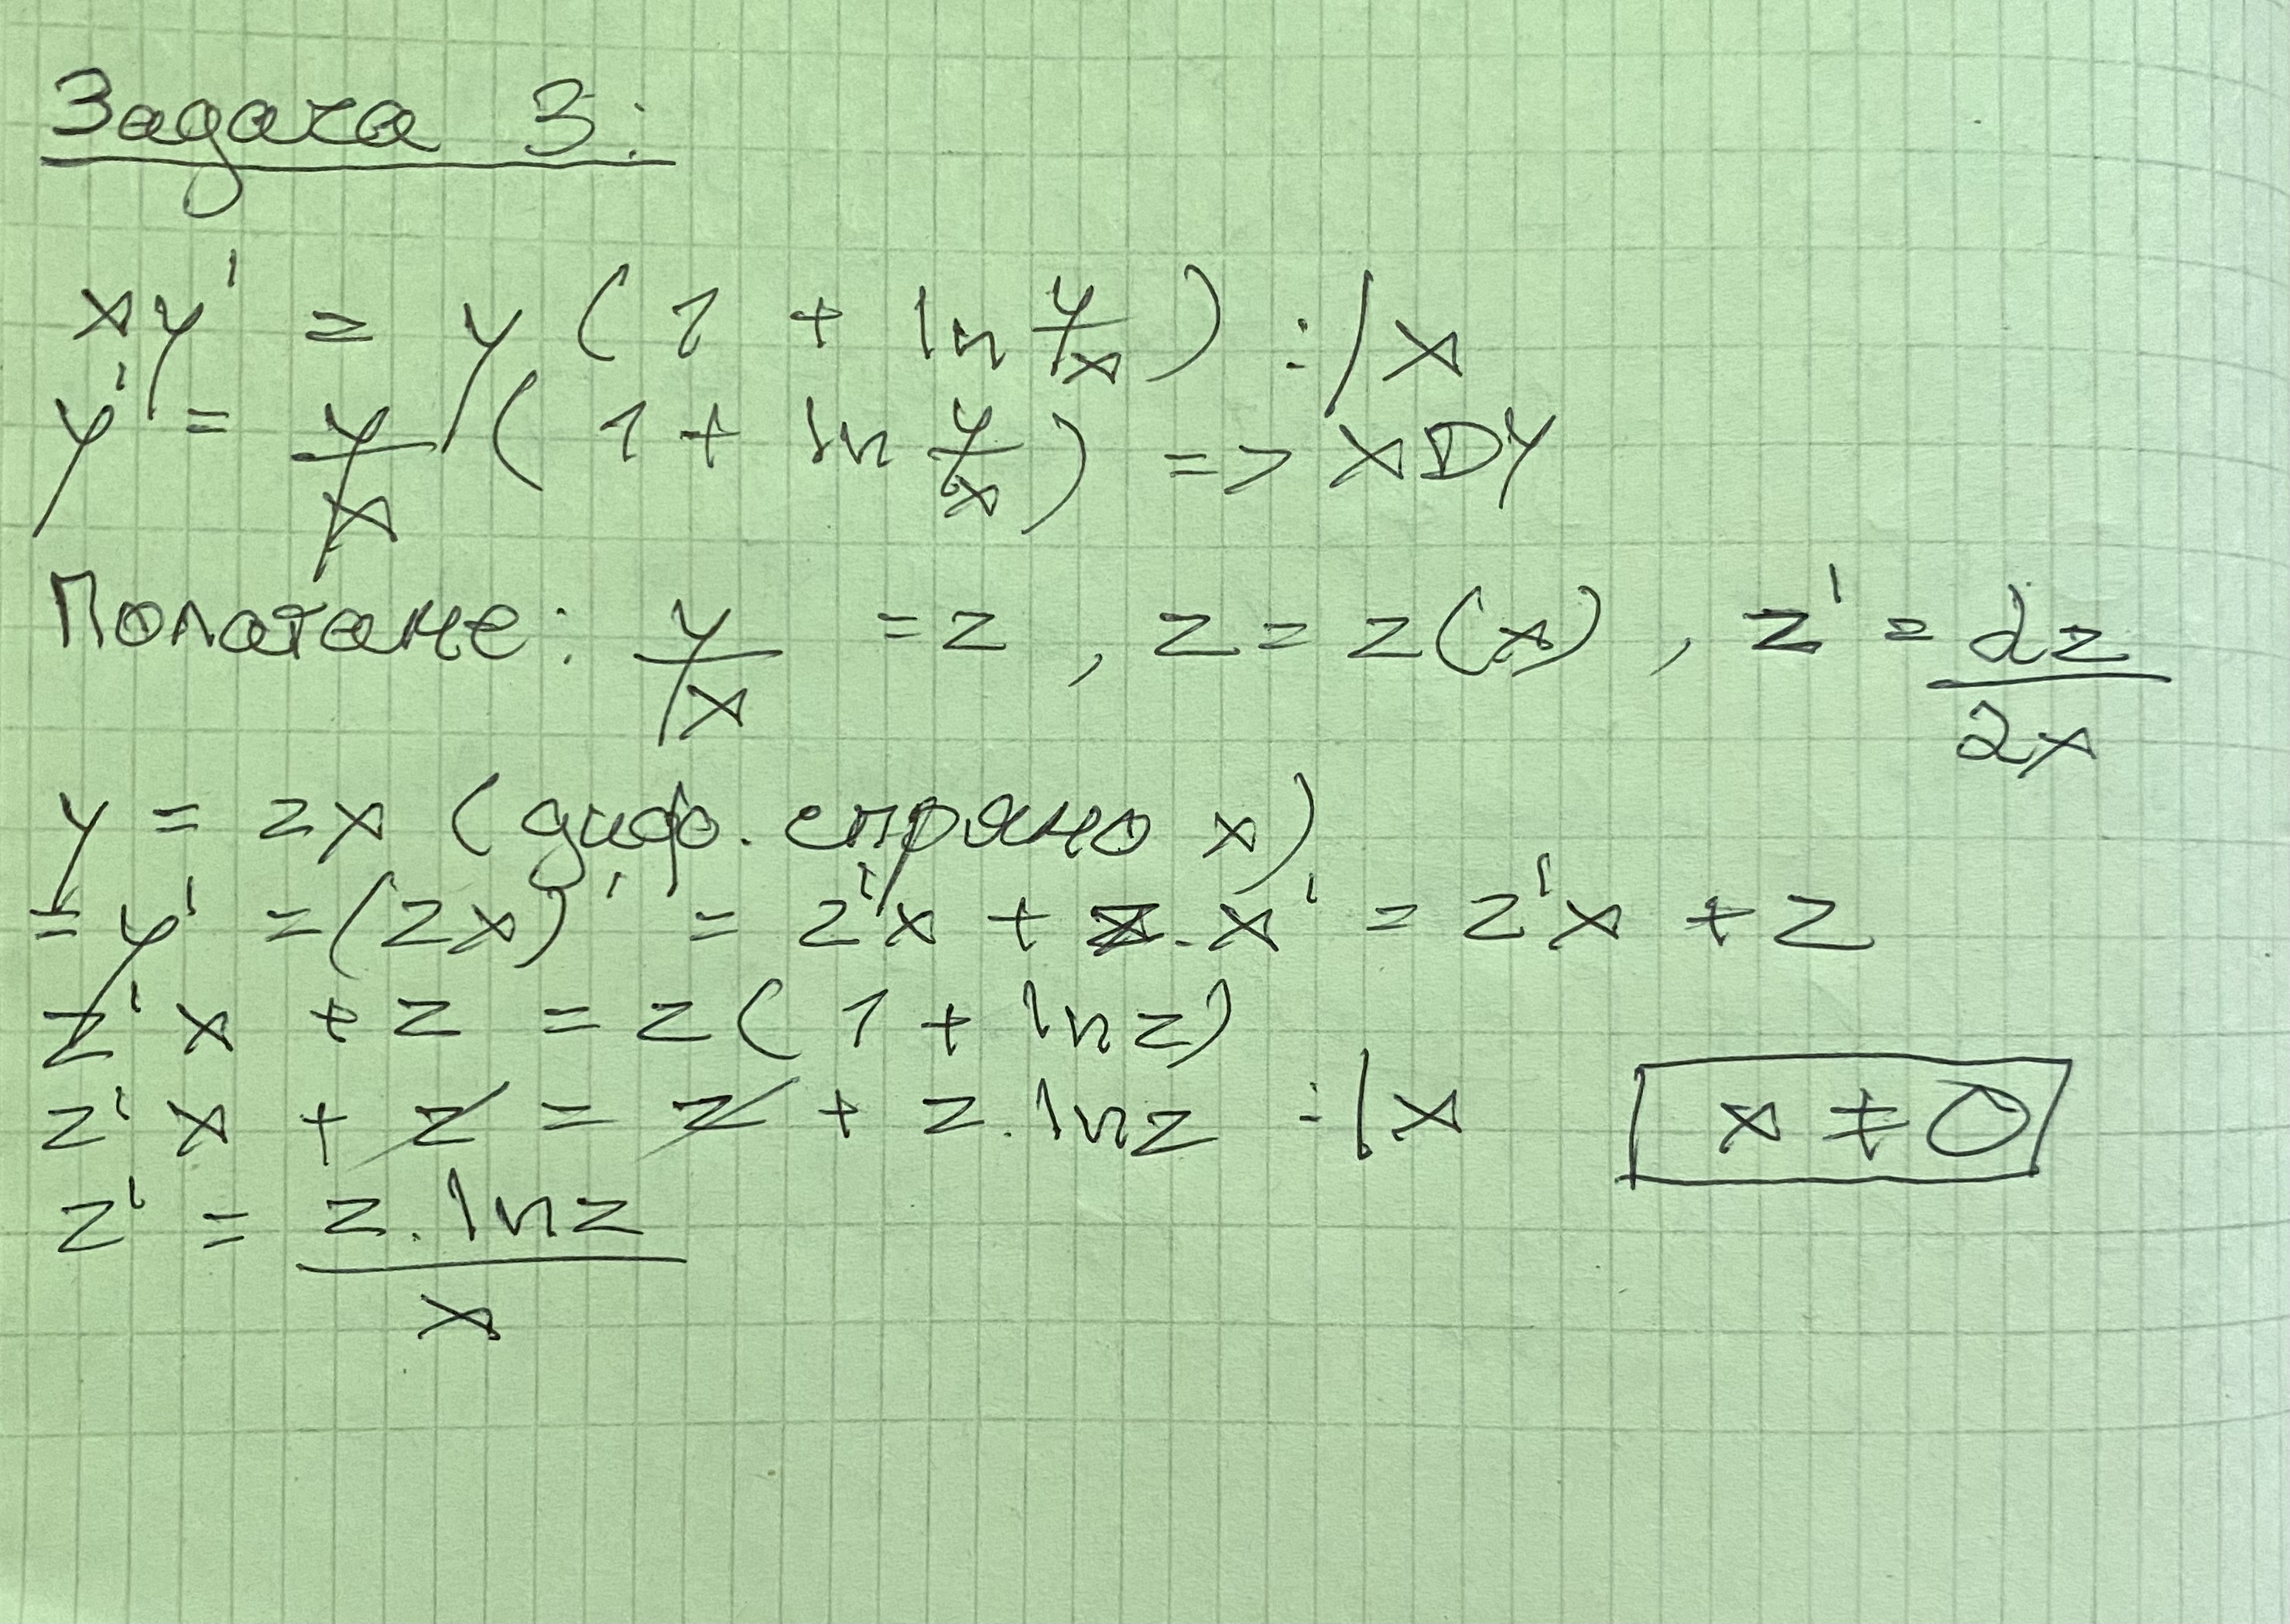 Задача 3:
xy' = y (1 + ln y/x) :/x
y' = y/x (1 + ln y/x) => ХДУ
Полагаме: y/x = z , z = z(x) , z' = dz/dx
y = zx (диф. спрямо x)
= y' = (zx)' = z'x + z.x' = z'x + z
z'x + z = z(1 + lnz)
z'x + z = z + z.lnz :|x x ≠ 0
z' = z.lnz / x